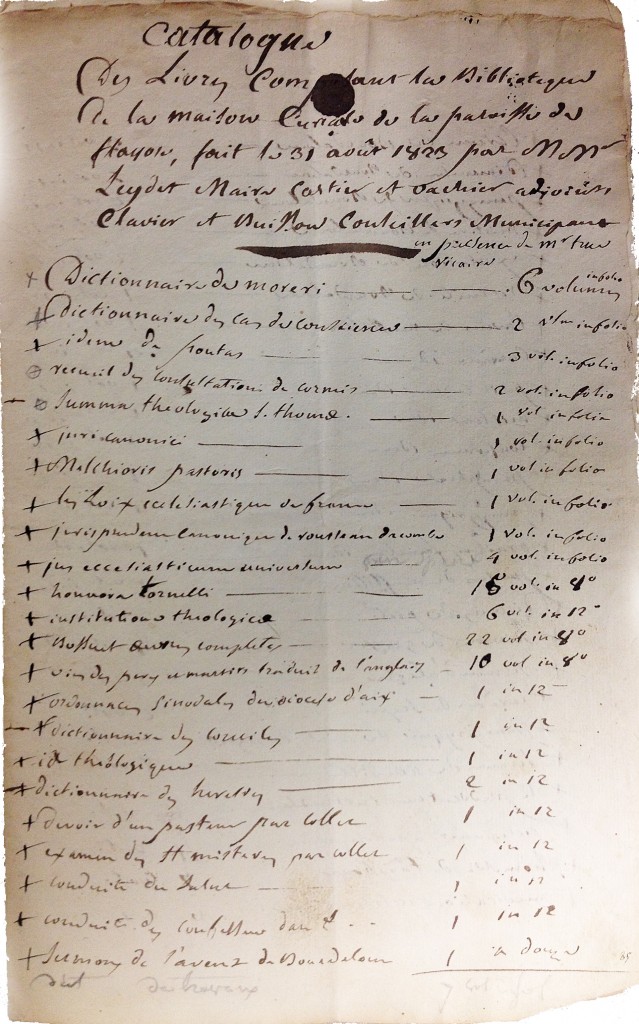 Catalogue
Des Livres Composant la Biblioteque
De la maison Curiale de la paroisse de
flayosc, fait le 31 août 1823 par M Mrs
Leydet Maire Cartier et vachier adjoints
Clavier et Buisson Conseillers Municipaux
en presence de mr
vicaire
+ Dictionnaire de moreri — 6 volumes infolio
+ dictionnaire des cas de conscience — 2 vlm infolio
+ idem de pontas — 3 vol. infolio
recueil des consultations de cormis — 2 vol. infolio
Summa theologica S. thomæ. — 1 vol infolio
+ juris canonici — 1 vol. infolio
+ Melchioris pastoris — 1 vol infolio
+ les Loix ecclesiastique de france — 1 vol. infolio
+ jurisprudence canonique de rousseau dacombe 1 vol. infolio
+ jus ecclesiasticum universum — 4 vol. infolio
+ honnora tornelli — 18 vol. in 8°
+ institutiones theologicæ — 6 vol. in 12°
+ Bossuet œuvres completes — 22 vol in 8°
+ vies des peres et martirs traduit de l'anglais — 10 vol in 8°
+ ordonnances sinodales du diocese d'aix — 1 in 12
+ dictionnaire des conciles — 1 in 12
+ id theólogique — 1 in 12
+ dictionnaire des heresies — 2 in 12
+ devoir d'un pasteur par collet 1 in 12
+ examen des st misteres par collet 1 in 12
+ conduite du — 1 in 12
+ conduite des confesseurs dans . . 1 in 12
+ Sermons de l'avent de Bourdaloue 1 in douze